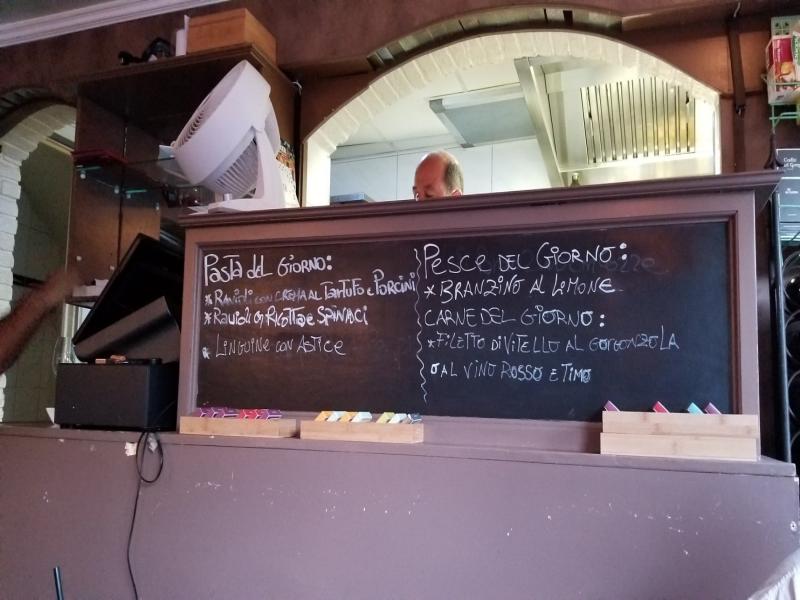 Pasta del Giorno:
* Ravioli con crema al Tartufo e Porcini
* Ravioli con Ricotta e Spinaci
* Linguine con Astice
Pesce del Giorno:
* Branzino al Limone
Carne del Giorno:
* Filetto di Vitello al Gorgonzola
o al Vino Rosso e Timo